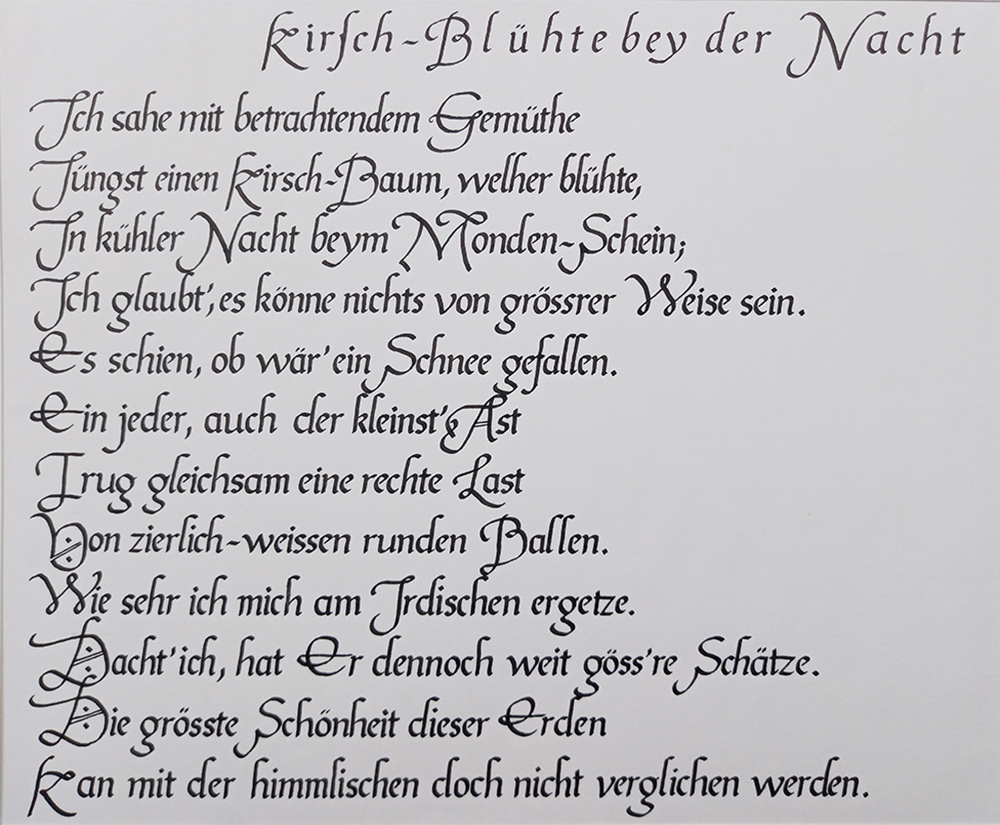 Kirsch-Blühte bey der Nacht
Ich sahe mit betrachtendem Gemüthe
Jüngst einen Kirsch-Baum, welher blühte,
In kühler Nacht beym Monden-Schein;
Ich glaubt', es könne nichts von grössrer Weise sein.
Es schien, ob wär' ein Schnee gefallen.
Ein jeder, auch der kleinst' Ast
Trug gleichsam eine rechte Last
Von zierlich-weissen runden Ballen.
Wie sehr ich mich am Irdischen ergetze.
Dacht' ich, hat Er dennoch weit göss're Schätze.
Die grösste Schönheit dieser Erden
Kan mit der himmlischen doch nicht verglichen werden.